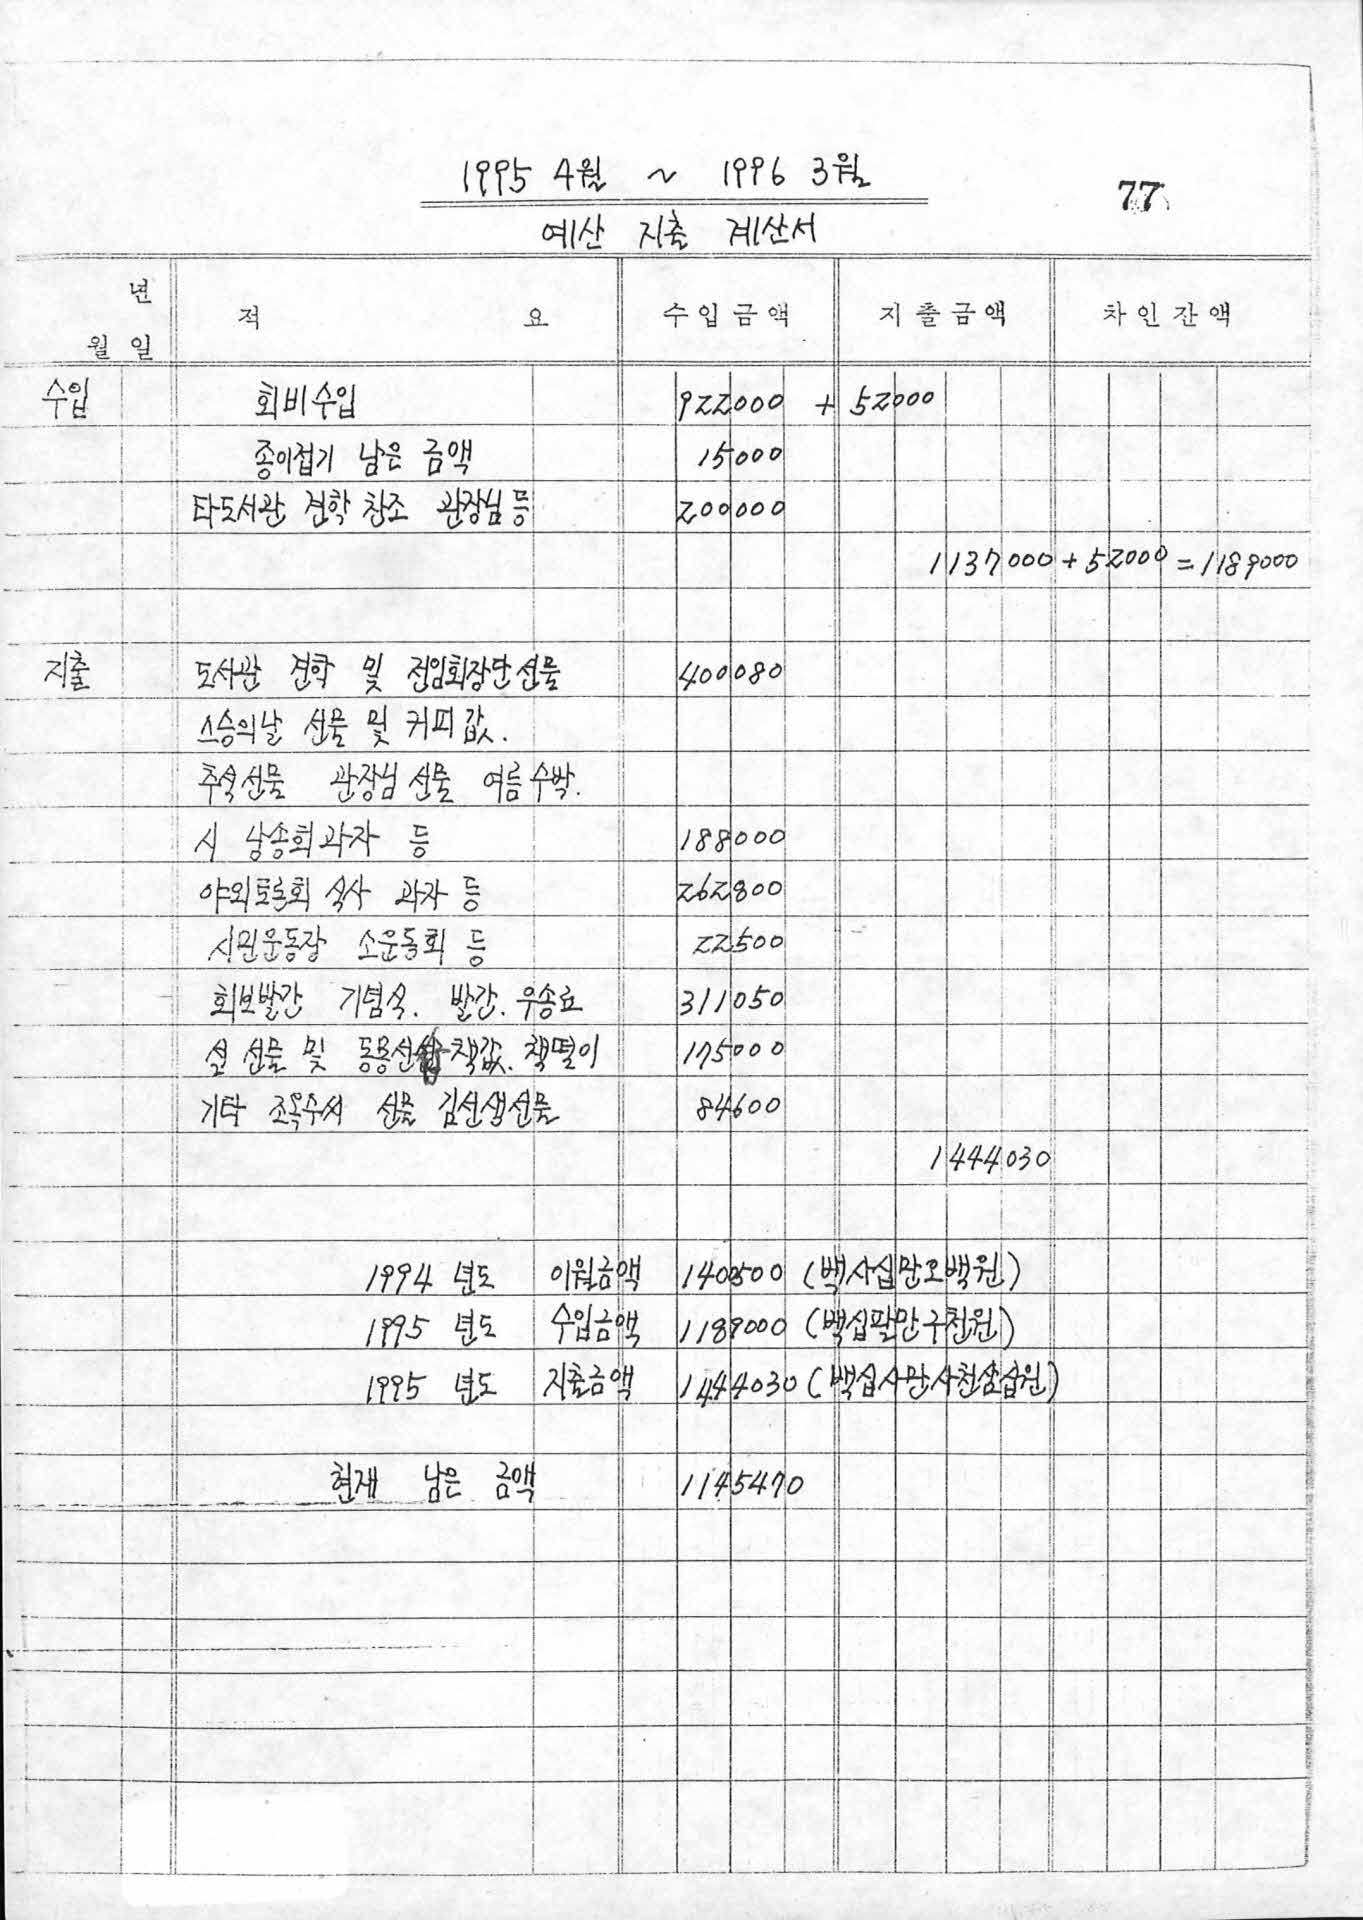 1995 4월 ~ 1996 3월
77
예산 지출 계산서
년
월 일
적 요
수입금액
지출금액
차인잔액
수입 회비수입 922000 + 52000
종이접기 남은 금액 15000
타도서관 견학 찬조 관장님 등 200000
1137000 + 52000 = 1189000
지출 도서관 견학 및 전임회장단 선물 400080
스승의날 선물 및 커피값.
추석선물 관장님 선물 여름수박.
시 낭송회 과자 등 188000
야외토론회 식사 과자 등 262800
시민운동장 소운동회 등 22500
회보발간 기념식. 발간. 우송료 311050
설 선물 및 책값. 책떨이 175000
기타 조옥수씨 선물 김선생선물 84600
1444030
1994 년도 이월금액 1400500 (백사십만오백원)
1995 년도 수입금액 1189000 (백십팔만구천원)
1995 년도 지출금액 1444030 (백십사만사천삼십원)
현재 남은 금액 1145470